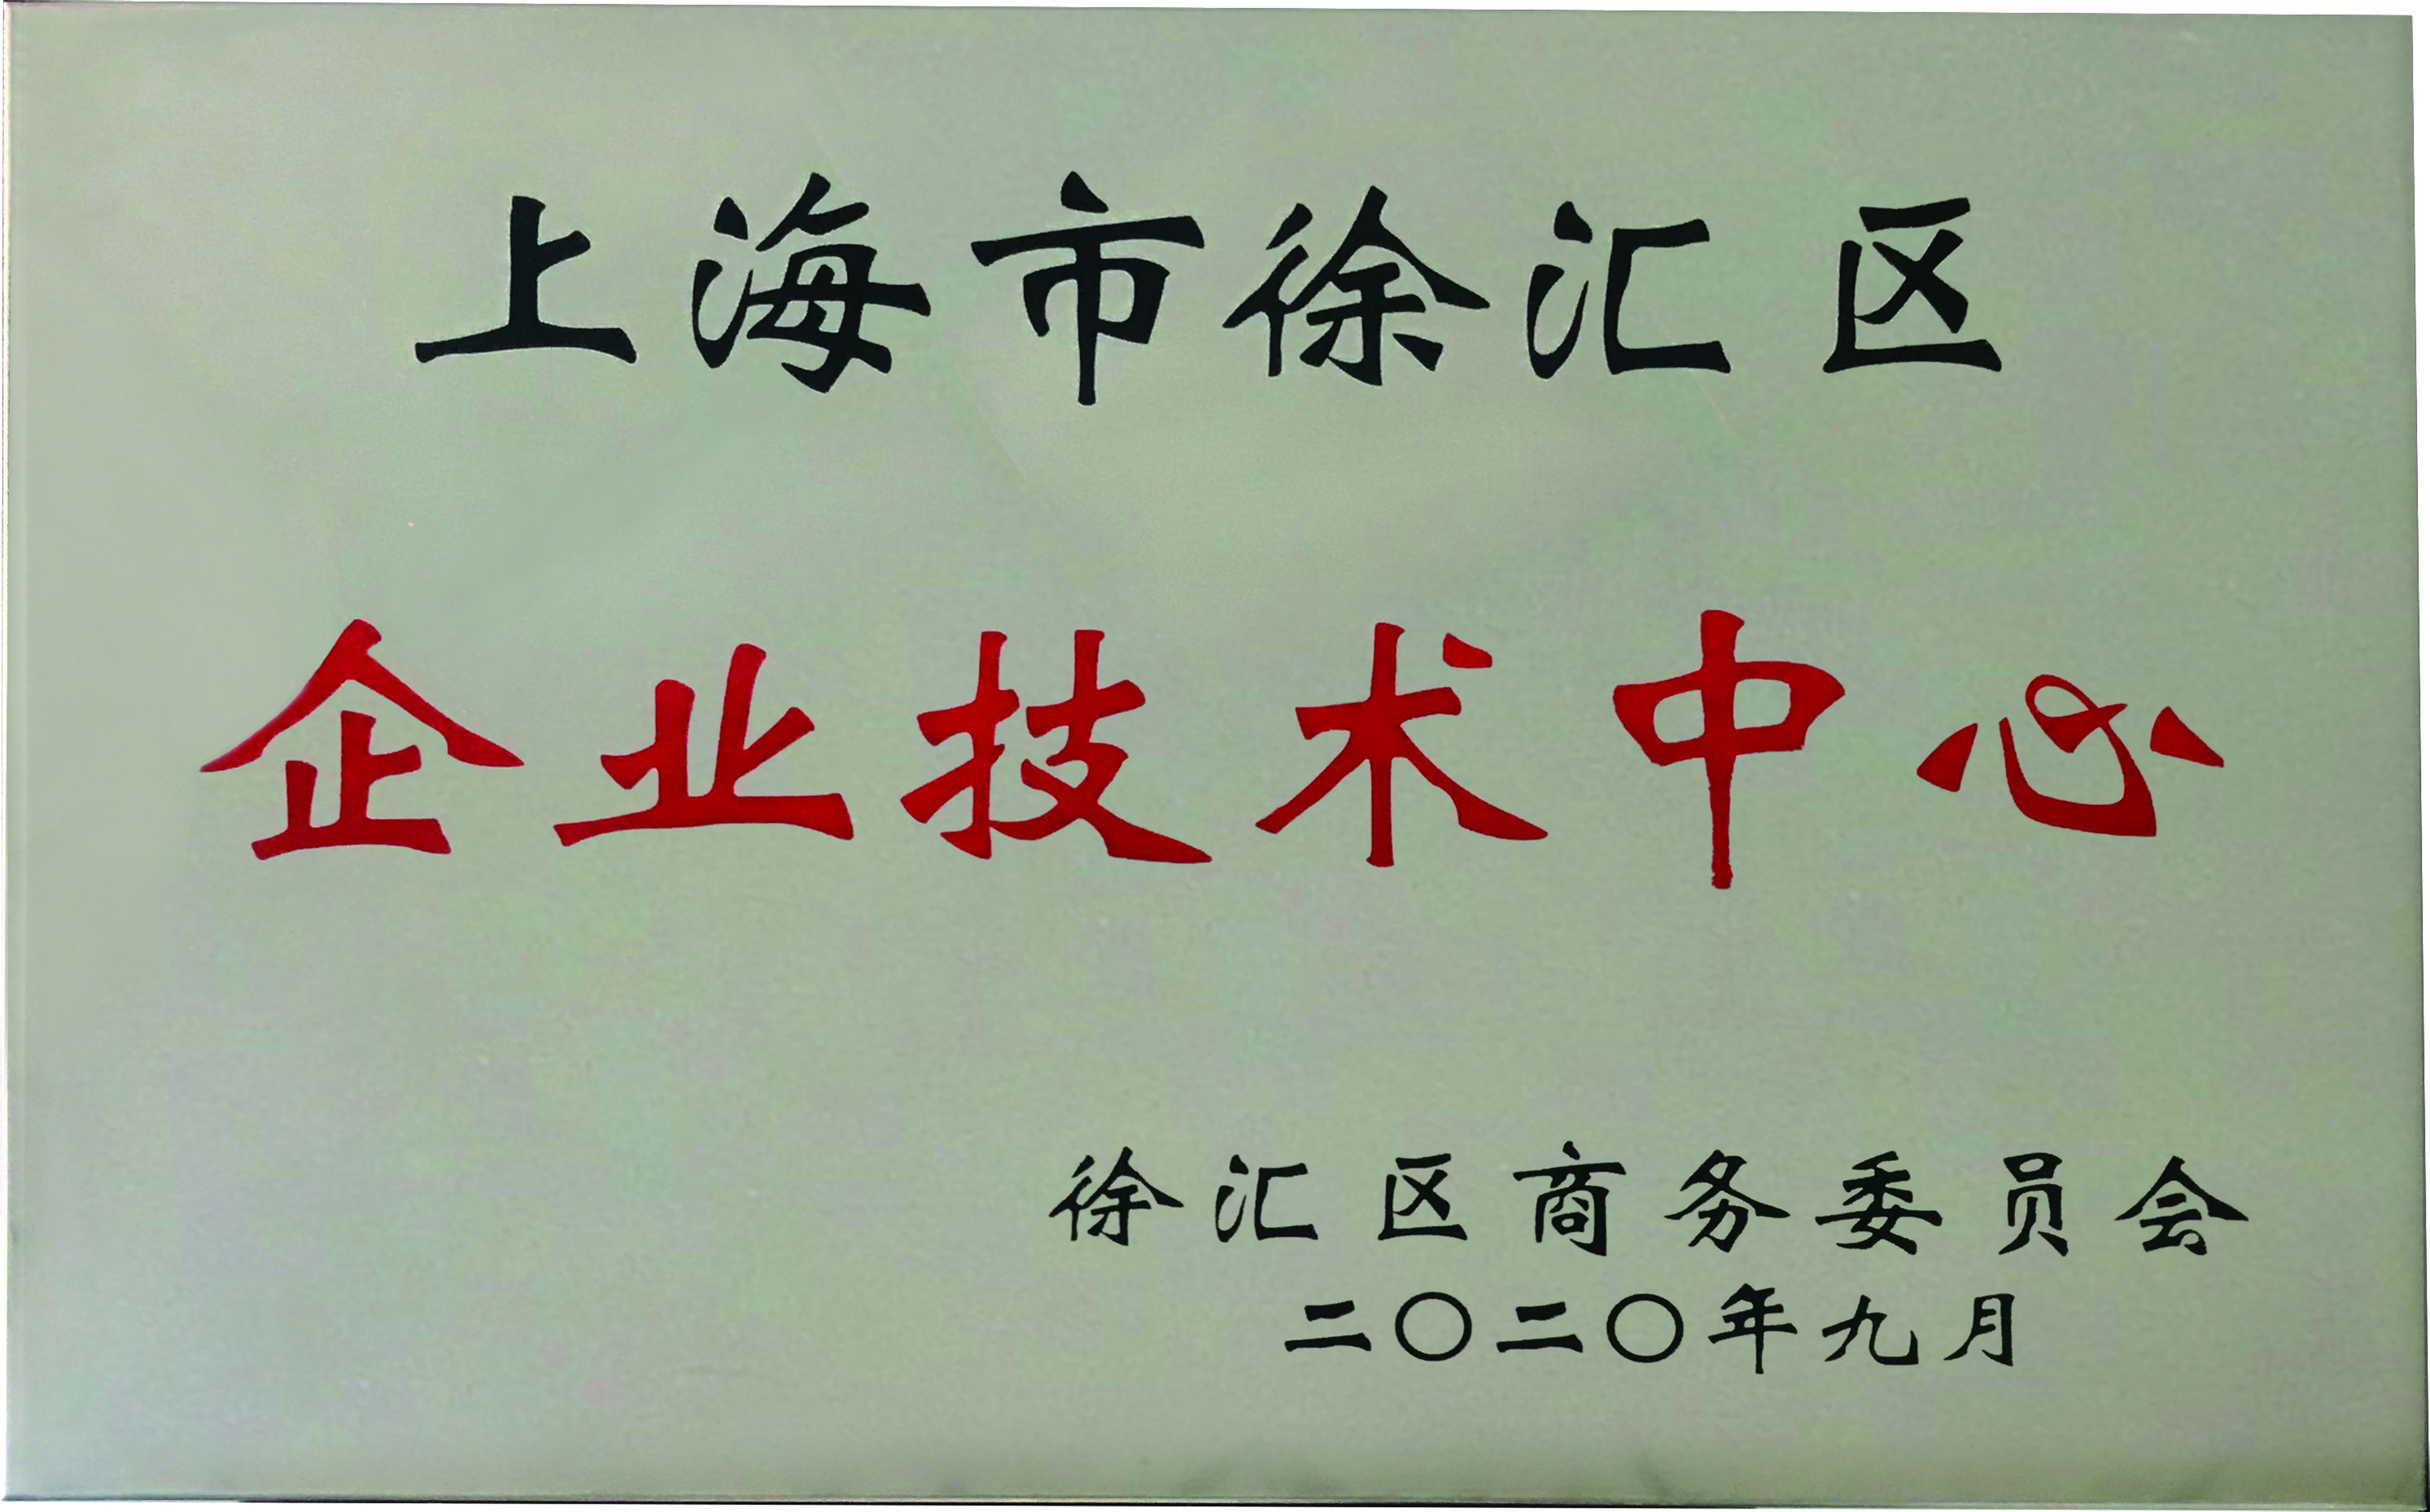 上海市徐汇区
企业技术中心
徐汇区商务委员会
二〇二〇年九月